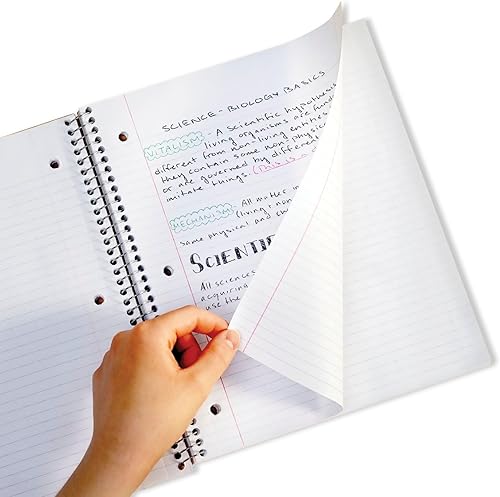 SCIENCE - BIOLOGY BASICS
VITALISM - A Scientific hypothesis
living organisms are
different from non-living entities
they contain some non-physical
or are governed by different
imitate things. (This is a
MECHANISM - All matter in
(living + non
same physical and
SCIENTI
All sciences
acquiring
use the